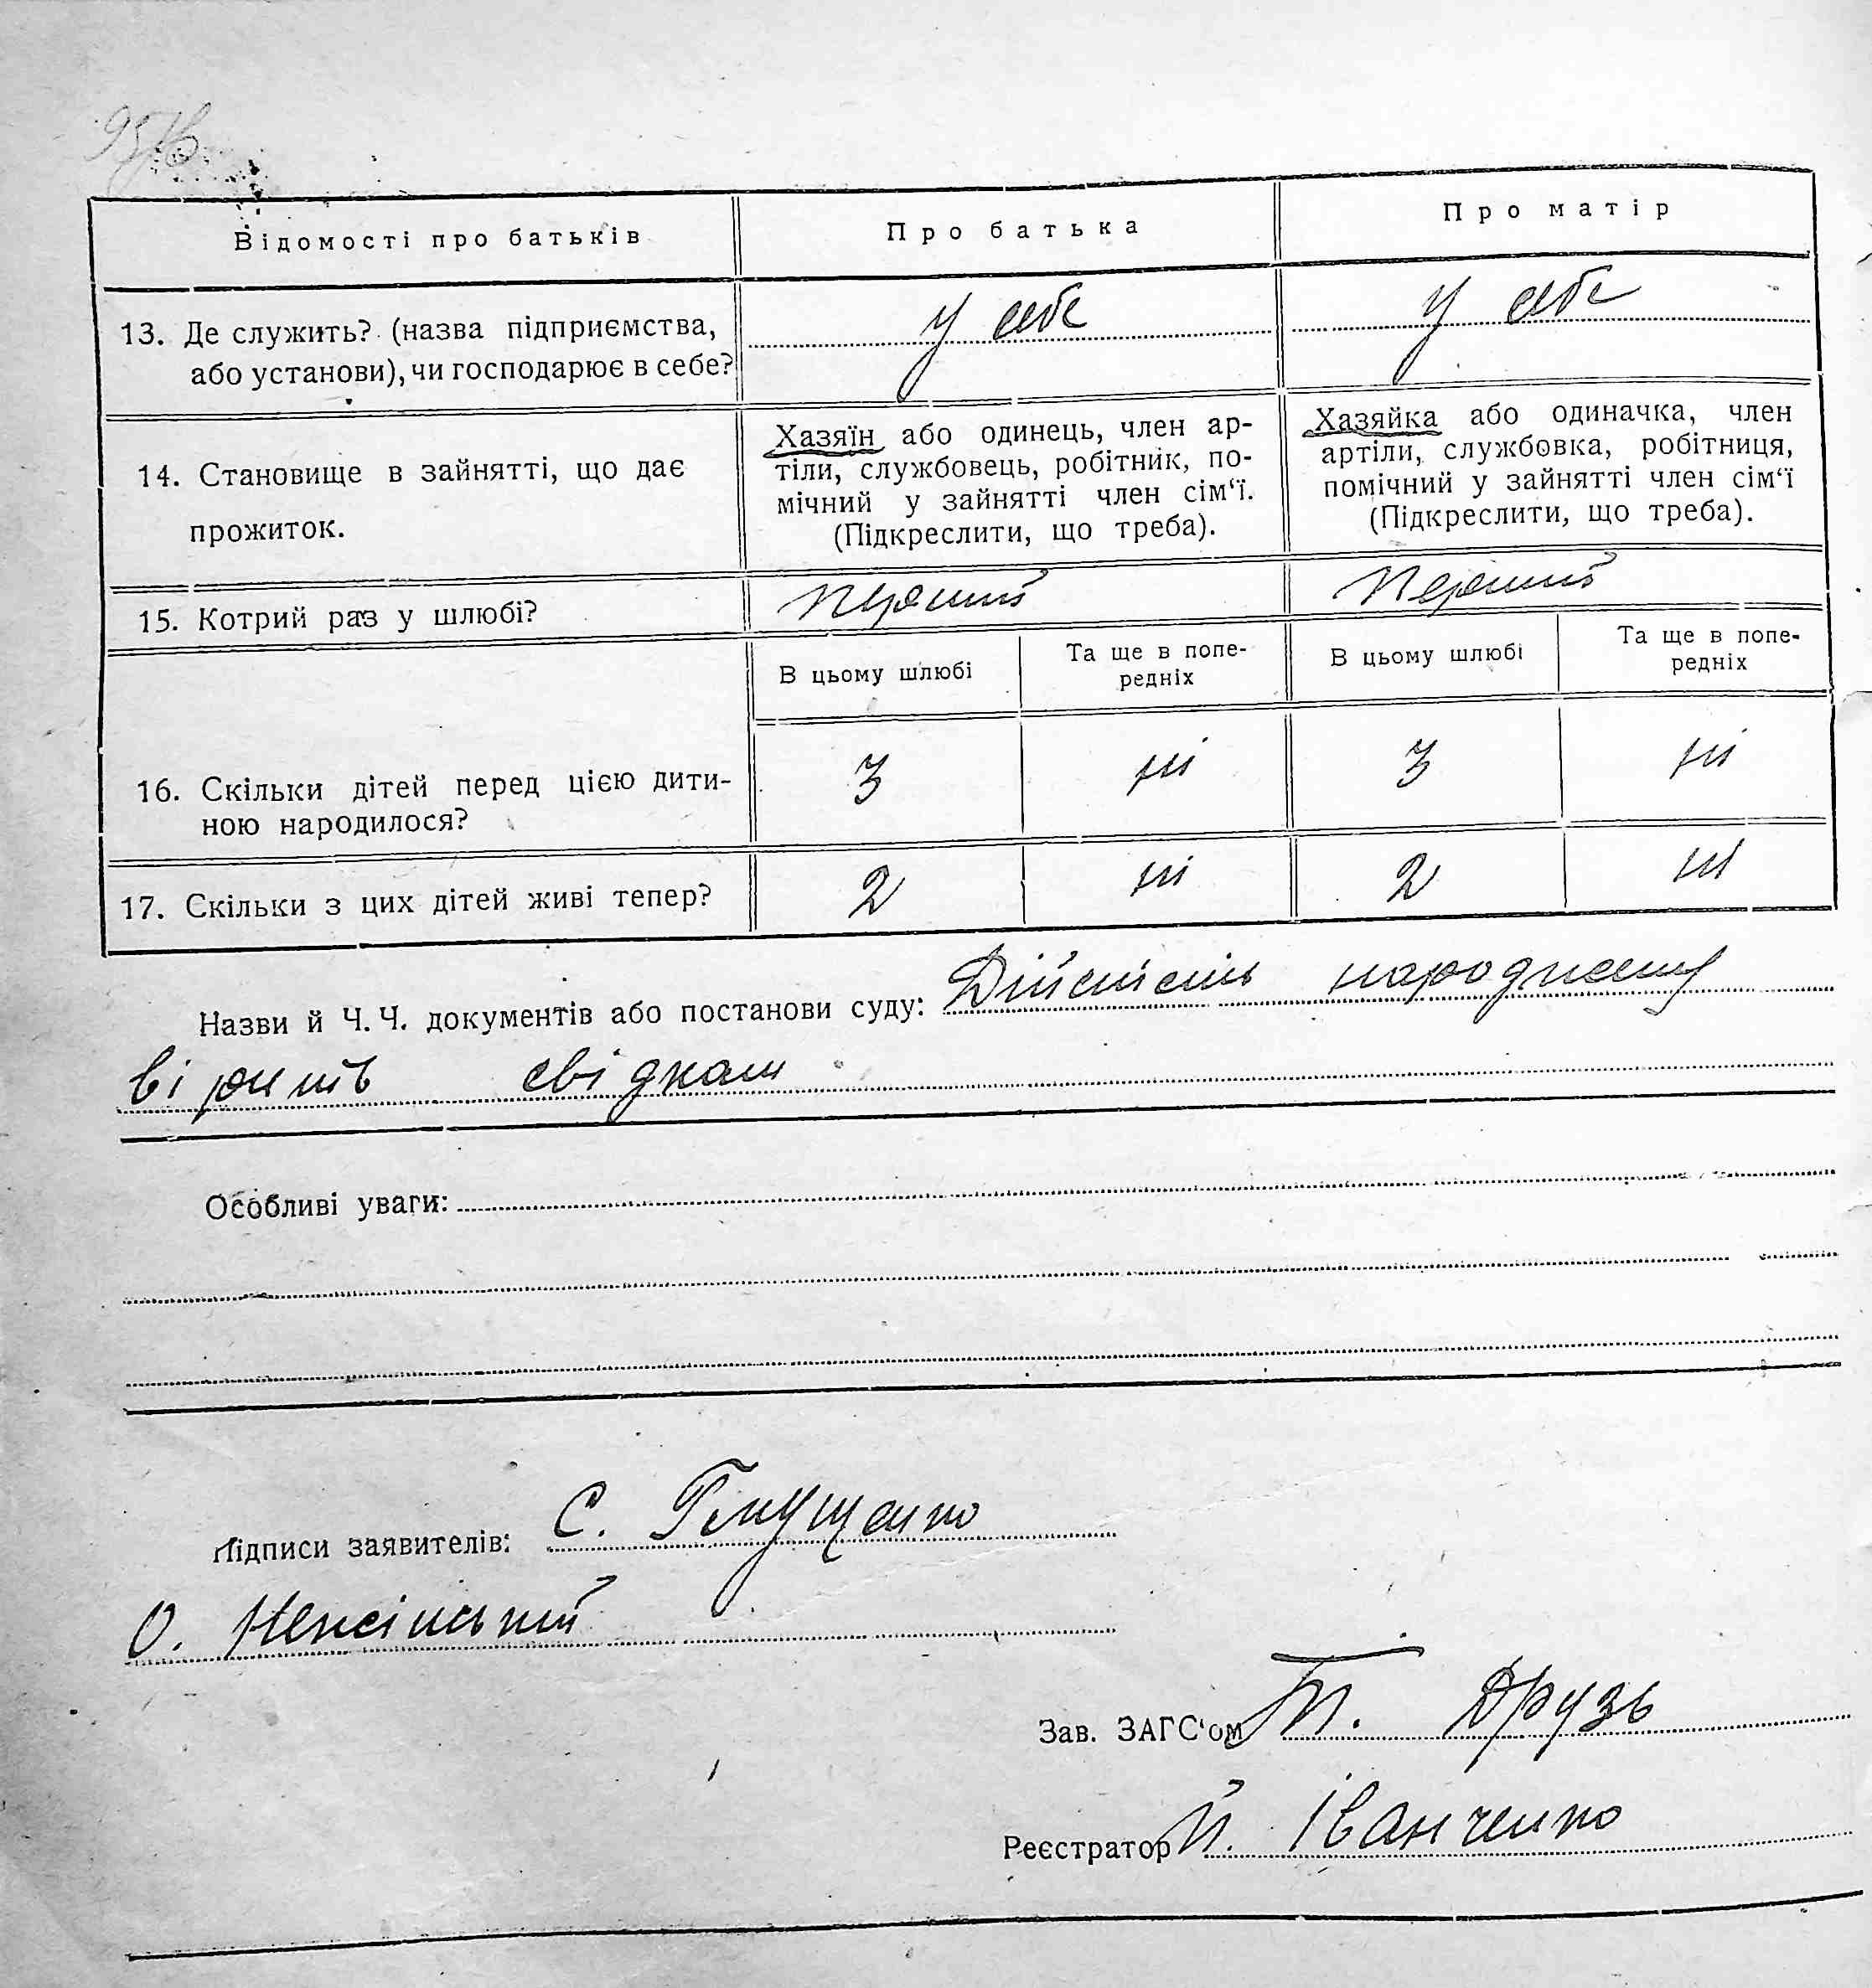 Відомості про батьків
Про батька
Про матір
13. Де служить? (назва підприємства,
або установи), чи господарює в себе?
у себе
у себе
14. Становище в зайнятті, що дає
прожиток.
Хазяїн або одинець, член ар-
тіли, службовець, робітник, по-
мічний у зайнятті член сім‘ї.
(Підкреслити, що треба).
Хазяйка або одиначка, член
артіли, службовка, робітниця,
помічний у зайнятті член сім‘ї
(Підкреслити, що треба).
15. Котрий раз у шлюбі?
перший
перший
В цьому шлюбі
Та ще в попе-
редніх
В цьому шлюбі
Та ще в попе-
редніх
16. Скільки дітей перед цією дити-
ною народилося?
3
ні
3
ні
17. Скільки з цих дітей живі тепер?
2
ні
2
ні
Назви й Ч. Ч. документів або постанови суду: Дійсність народження
свідками
Особливі уваги:
Підписи заявителів: С. Глущенко
О.
Зав. ЗАГС‘ом Т. Друзь
Реєстратор Й. Іванченко